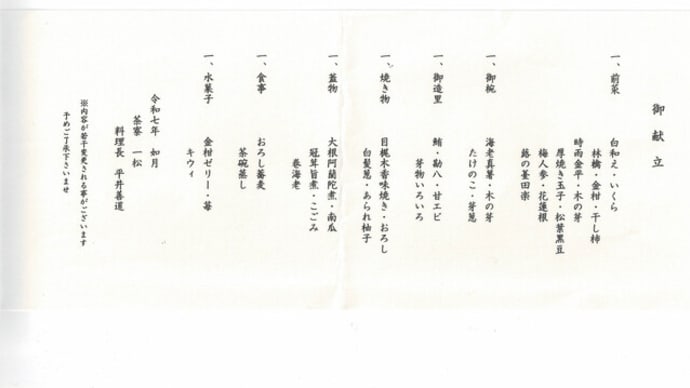 御献立
一、前菜 白和え・いくら
林檎・金柑・干し柿
時雨金平・木の芽
厚焼き玉子・松葉黒豆
梅人参・花蓮根
蕗の薹田楽
一、御椀 海老真薯・木の芽
たけのこ・芽葱
一、御造里 鮪・勘八・甘エビ
芽物いろいろ
一、焼き物 目梶木香味焼き・おろし
白髪葱・あられ柚子
一、蓋物 大根阿蘭陀煮・南瓜
冠茸旨煮・こごみ
巻海老
一、食事 おろし蕎麦
茶碗蒸し
一、水菓子 金柑ゼリー・苺
キウィ
令和七年 如月
茶寮 一松
料理長 平井善道
※内容が若干変更される事がございます
予めご了承下さいませ